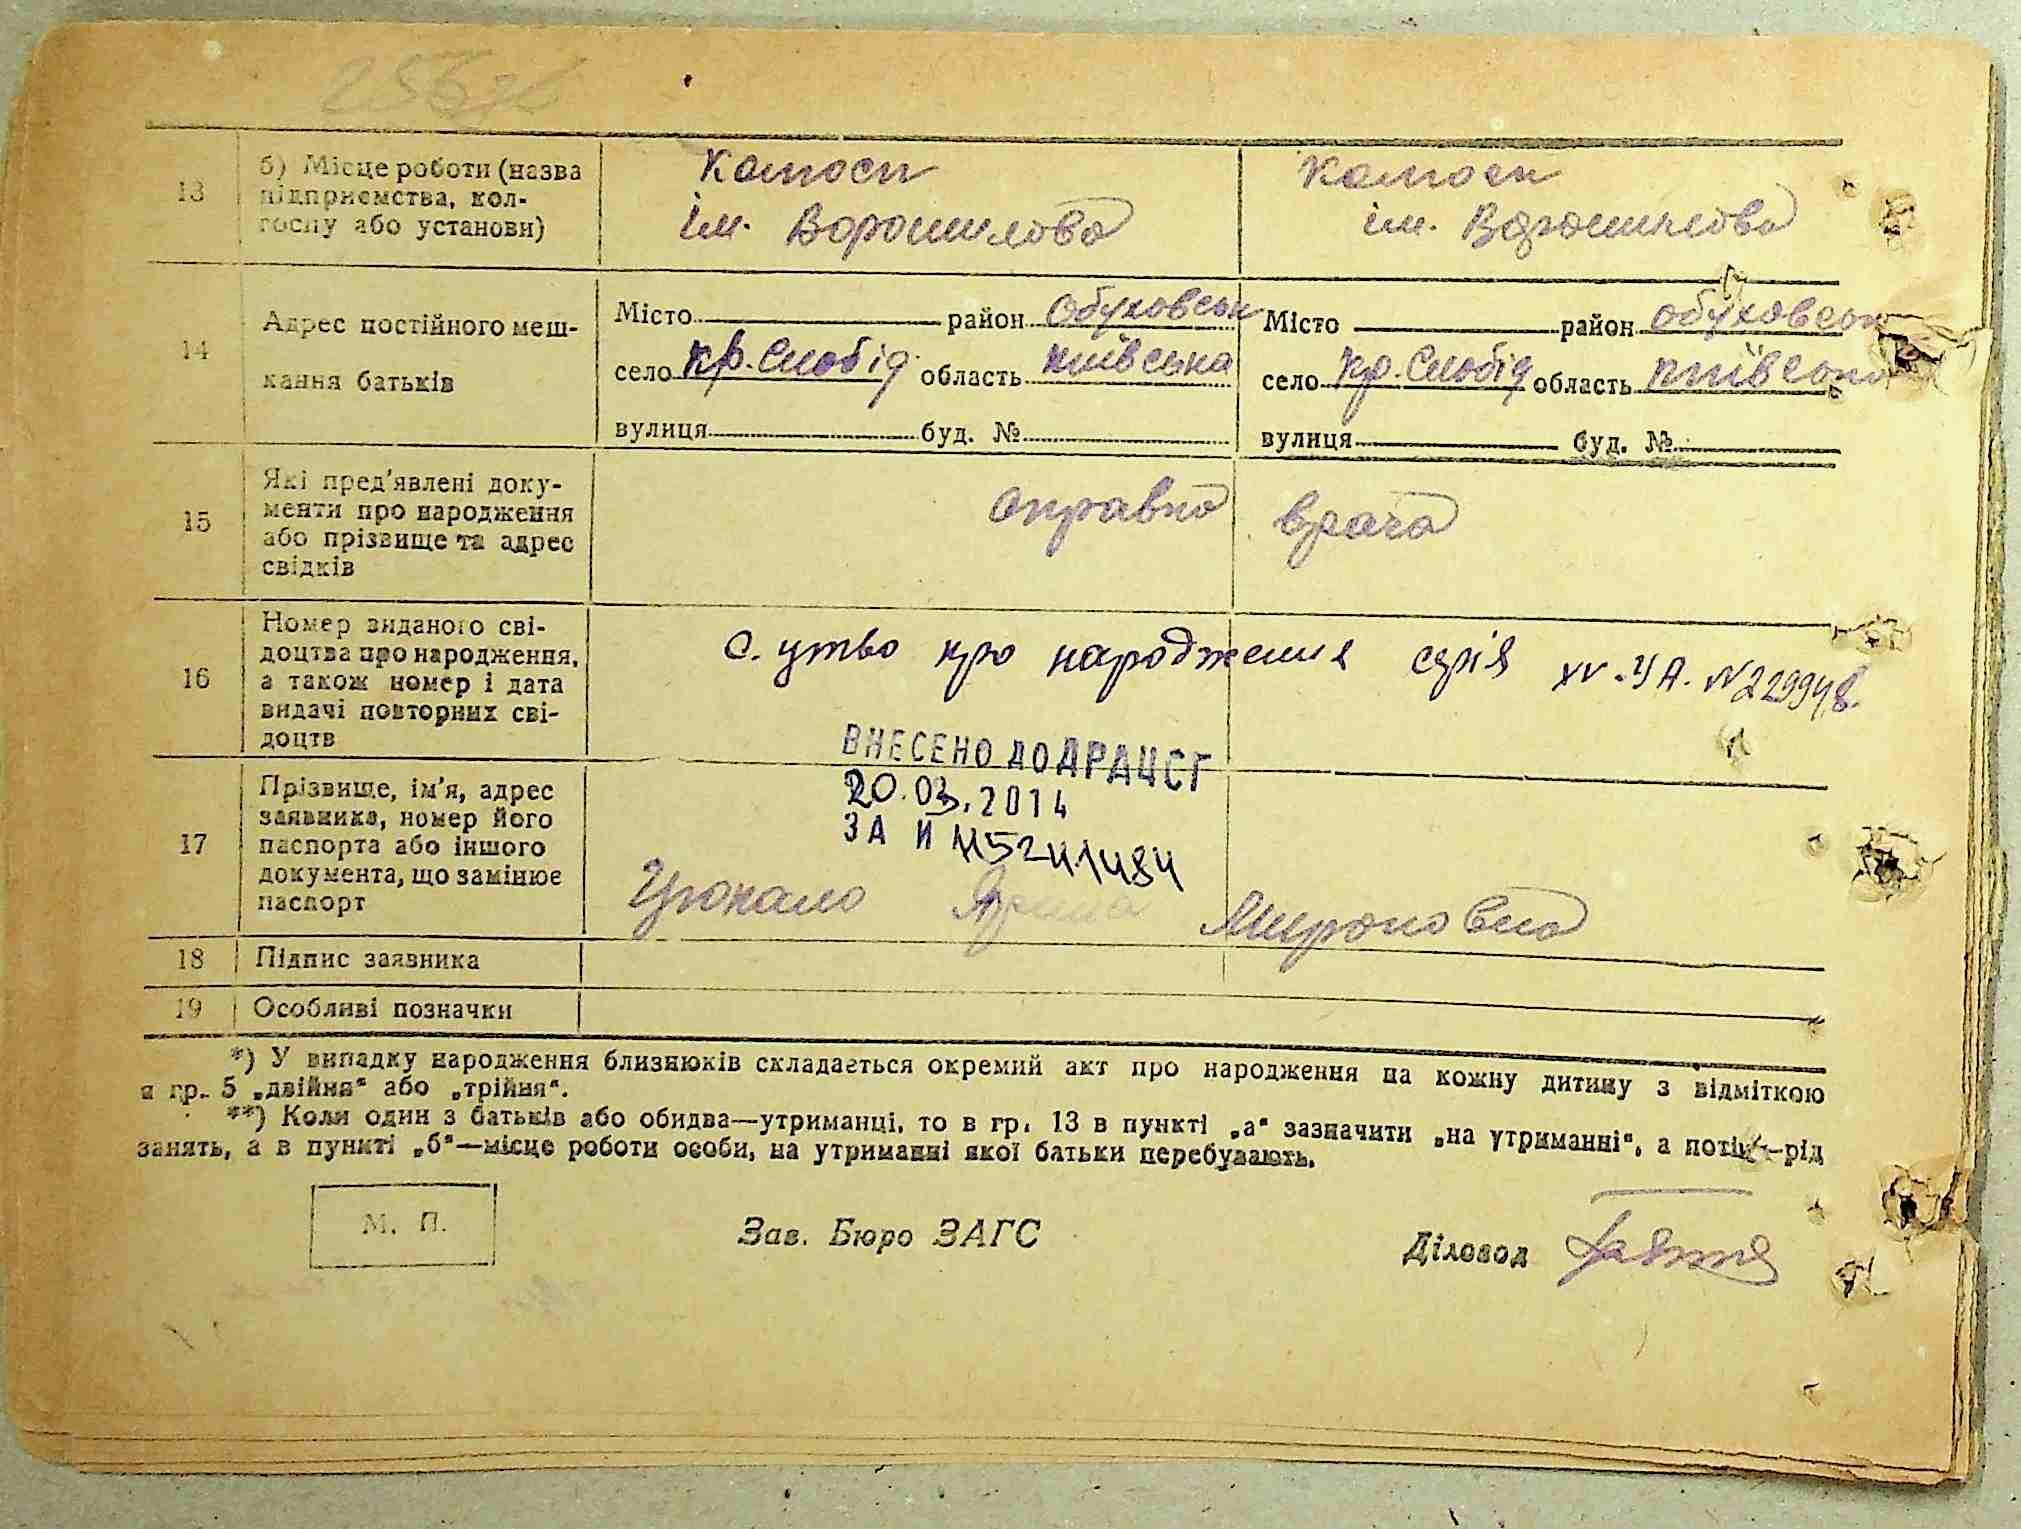 256
13
б) Місце роботи (назва
підприємства, кол-
госпу або установи)
Колгосп
ім. Ворошилова
Колгосп
ім. Ворошилова
14
Адрес постійного меш-
кання батьків
Місто район Обуховськ
село Кр. Слобід. область Київська
вулиця буд. №
Місто район Обуховськ
село Кр. Слобід область Київська
вулиця буд. №
15
Які пред'явлені доку-
менти про народження
або прізвище та адрес
свідків
Справка врача
16
Номер виданого сві-
доцтва про народження,
а також номер і дата
видачі повторних сві-
доцтв
про народження серія XV-УА. N 229948.
ВНЕСЕНО ДО ДРАЦСГ
20.03.2014
ЗА N
17
Прізвище, ім'я, адрес
заявника, номер його
паспорта або іншого
документа, що замінює
паспорт
Мироновна
18
Підпис заявника
19
Особливі позначки
*) У випадку народження близнюків складається окремий акт про народження на кожну дитину з відміткою
в гр. 5 „двійня“ або „трійня“.
**) Коли один з батьків або обидва—утриманці, то в гр. 13 в пункті „а“ зазначити „на утриманні“, а потім—рід
занять, а в пункті „б“—місце роботи особи, на утриманні якої батьки перебувають.
М. П.
Зав. Бюро ЗАГС
Діловод